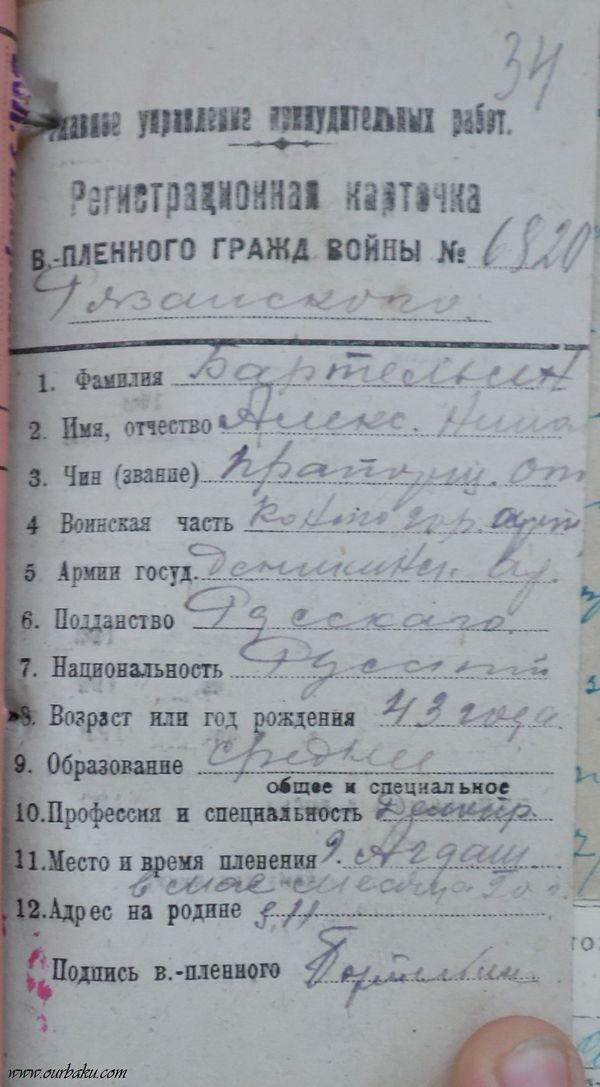 34
Главное управление принудительных работ.
Регистрационная карточка
В.-ПЛЕННОГО ГРАЖД ВОЙНЫ № 6820
Рязанского
1. Фамилия Бартельсин
2. Имя, отчество Алекс. Никол
3. Чин (звание) прапорщ. от
4 Воинская часть Конно гор. арт
5 Армии госуд. Деникинск. ар.
6. Подданство Русскаго
7. Национальность Русский
8. Возраст или год рождения 43 года
9. Образование среднее
общее и специальное
10. Профессия и специальность
11. Место и время пленения г. Агдаш
в мае месяца 20 г.
12. Адрес на родине
Подпись в.-пленного
www.ourbaku.com